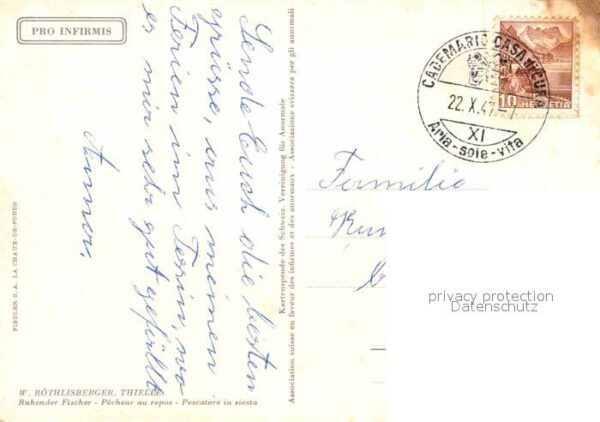 PRO INFIRMIS
Sende Euch die besten
Grüsse, aus meinen
Ferien im Tessin, wo
es mir sehr gut gefällt
FIEDLER S. A. LA CHAUX-DE-FONDS
W. RÖTHLISBERGER, THIELLE
Ruhender Fischer - Pêcheur au repos - Pescatore in siesta
Kartenspende der Schweiz. Vereinigung für Anormale
Association suisse en faveur des infirmes et des anormaux - Associazione svizzera per gli anormali
CADEMARIO CASA DI CURA
22.X.41
XI
Aria-sole-vita
10 HELVETIA
Familie
privacy protection
Datenschutz